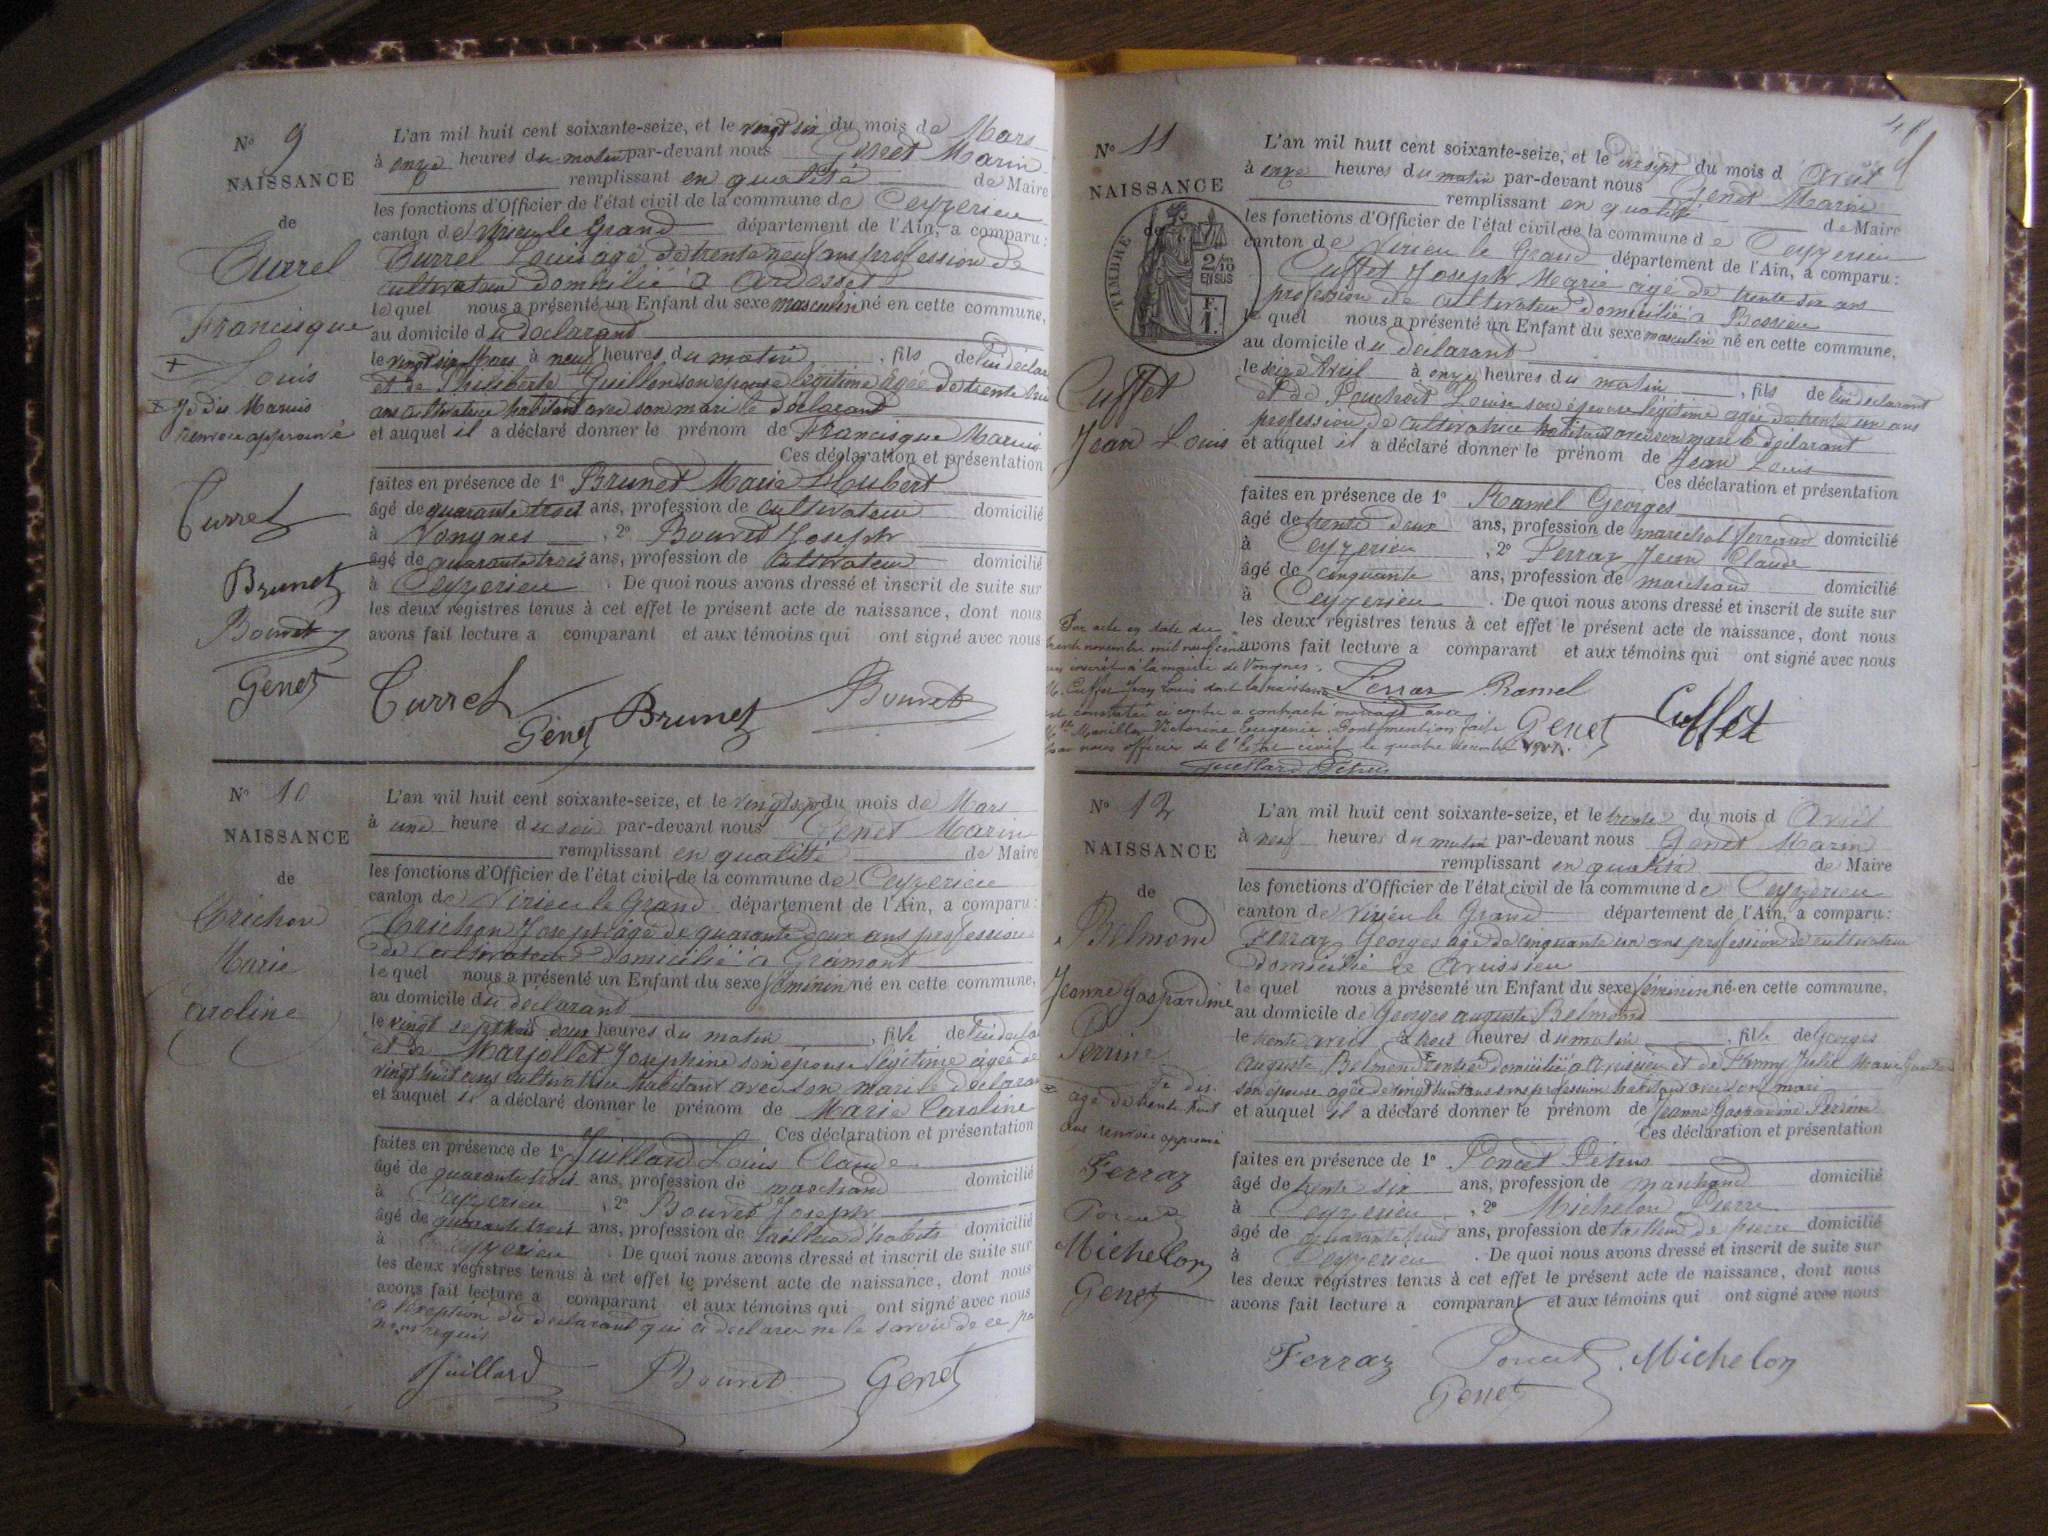 N° 9
NAISSANCE
de
Turrel
Francisque
Louis
Je dis Marius
renvoi approuvé
Turrel
Brunet
Bouvet
Genet
L'an mil huit cent soixante-seize, et le vingt six du mois de Mars
à onze heures du matin par-devant nous Genet Marin
remplissant en qualité de Maire
les fonctions d'Officier de l'état civil de la commune de Ceyzerieu
canton de Virieu le Grand département de l'Ain, a comparu:
Turrel Louis agé de trente neuf ans profession de
cultivateur domicilié à Ardosset
le quel nous a présenté un Enfant du sexe masculin né en cette commune,
au domicile du déclarant
le vingt six Mars à neuf heures du matin, fils de lui déclar
et de Philiberte Guillon son épouse légitime âgée de trente
ans cultivatrice habitant avec son mari le déclarant
et auquel il a déclaré donner le prénom de Francisque Marius
Ces déclaration et présentation
faites en présence de 1° Brunet Marie Hubert
âgé de quarante trois ans, profession de cultivateur domicilié
à Vongnes, 2° Bouvet Joseph
âgé de quarante trois ans, profession de cultivateur domicilié
à Ceyzerieu. De quoi nous avons dressé et inscrit de suite sur
les deux registres tenus à cet effet le présent acte de naissance, dont nous
avons fait lecture a comparant et aux témoins qui ont signé avec nous
Turrel
Genet Brunet Bouvet
N° 10
NAISSANCE
de
Trichon
Marie
Caroline
L'an mil huit cent soixante-seize, et le vingt sept du mois de Mars
à une heure du soir par-devant nous Genet Marin
remplissant en qualité de Maire
les fonctions d'Officier de l'état civil de la commune de Ceyzerieu
canton de Virieu le Grand département de l'Ain, a comparu:
Trichon Joseph agé de quarante deux ans profession
de cultivateur domicilié à Gramont
le quel nous a présenté un Enfant du sexe féminin né en cette commune,
au domicile du déclarant
le vingt sept à deux heures du matin, fille de lui déclar
et de Marjollet Joséphine son épouse légitime agée de
vingt huit ans cultivatrice habitant avec son mari le déclarant
et auquel il a déclaré donner le prénom de Marie Caroline
Ces déclaration et présentation
faites en présence de 1° Juillard Louis Claude
âgé de quarante trois ans, profession de marchand domicilié
à Ceyzerieu, 2° Bouvet Joseph
âgé de quarante trois ans, profession de tailleur d'habits domicilié
à Ceyzerieu. De quoi nous avons dressé et inscrit de suite sur
les deux registres tenus à cet effet le présent acte de naissance, dont nous
avons fait lecture a comparant et aux témoins qui ont signé avec nous
à l'exception du déclarant qui a déclarer ne le savoir de ce
requis
Juillard Bouvet Genet
48
N° 11
NAISSANCE
de
TIMBRE
2/10
EN SUS
F.
1.
Cuffet
Jean Louis
Par acte en date du
trente novembre mil neuf cent
un inscrit à la mairie de Vongnes,
M. Cuffet Jean Louis dont la naissance
est constatée ci contre a contracté mariage avec
Victorine Eugénie. Dont mention faite
par nous officier de l'état civil le quatre décembre 1901.
Juillard Pétrus
L'an mil huit cent soixante-seize, et le dix sept du mois d'Avril
à onze heures du matin par-devant nous Genet Marin
remplissant en qualité de Maire
les fonctions d'Officier de l'état civil de la commune de Ceyzerieu
canton de Virieu le Grand département de l'Ain, a comparu:
Cuffet Joseph Marie agé de trente six ans
profession de cultivateur domicilié à Bossieu
le quel nous a présenté un Enfant du sexe masculin né en cette commune,
au domicile du déclarant
le seize Avril à onze heures du matin, fils de lui déclarant
et de Louise son épouse légitime agée de trente un ans
profession de cultivatrice habitant avec son mari le déclarant
et auquel il a déclaré donner le prénom de Jean Louis
Ces déclaration et présentation
faites en présence de 1° Ramel Georges
âgé de trente deux ans, profession de maréchal ferrand domicilié
à Ceyzerieu, 2° Ferraz Jean Claude
âgé de cinquante ans, profession de marchand domicilié
à Ceyzerieu. De quoi nous avons dressé et inscrit de suite sur
les deux registres tenus à cet effet le présent acte de naissance, dont nous
avons fait lecture a comparant et aux témoins qui ont signé avec nous
Ferraz Ramel
Genet Cuffet
N° 12
NAISSANCE
de
Belmond
Jeanne Gaspardine
Perrine
Je dis
agé de trente huit
ans renvoi approuvé
Ferraz
Poncet
Michelon
Genet
L'an mil huit cent soixante-seize, et le trente du mois d'Avril
à neuf heures du matin par-devant nous Genet Marin
remplissant en qualité de Maire
les fonctions d'Officier de l'état civil de la commune de Ceyzerieu
canton de Virieu le Grand département de l'Ain, a comparu:
Ferraz Georges agé de cinquante un ans profession de cultivateur
domicilié à Avrissieu
le quel nous a présenté un Enfant du sexe féminin né en cette commune,
au domicile de Georges Auguste Belmond
le trente avril à trois heures du matin, fille de Georges
Auguste Belmond rentier domicilié à Avrissieu et de Fanny Julie Marie
son épouse agée de vingt huit ans sans profession habitant avec son mari
et auquel il a déclaré donner le prénom de Jeanne Gaspardine Perrine
Ces déclaration et présentation
faites en présence de 1° Poncet Pétrus
âgé de trente six ans, profession de marchand domicilié
à Ceyzerieu, 2° Michelon Pierre
âgé de quarante huit ans, profession de tailleur de pierre domicilié
à Ceyzerieu. De quoi nous avons dressé et inscrit de suite sur
les deux registres tenus à cet effet le présent acte de naissance, dont nous
avons fait lecture a comparant et aux témoins qui ont signé avec nous
Ferraz Poncet Michelon
Genet